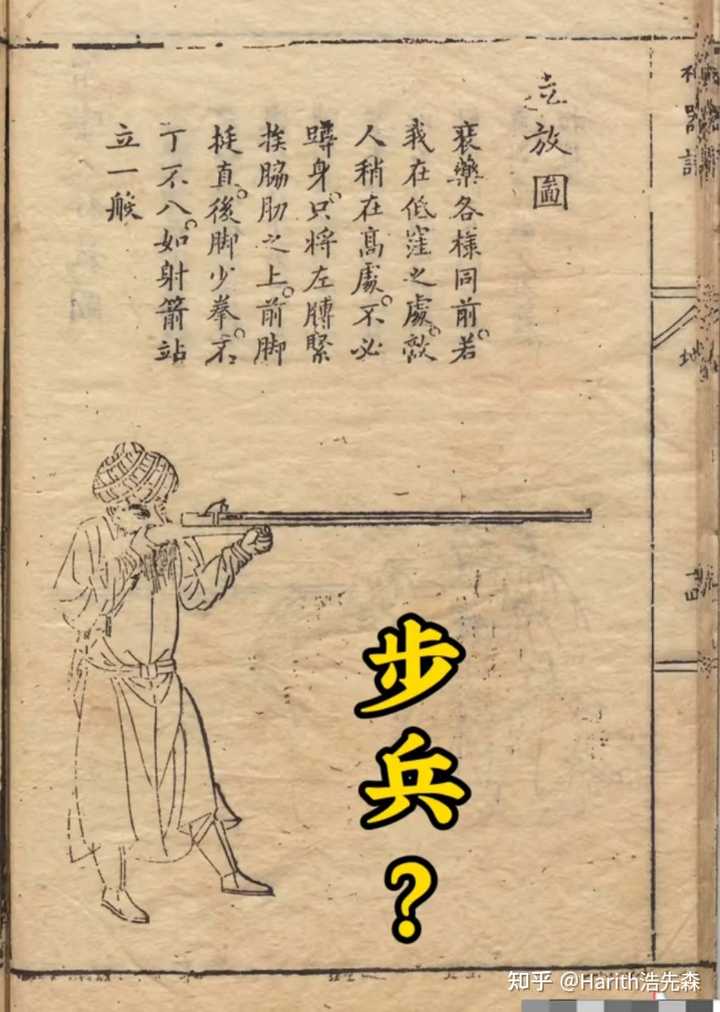 神器譜
立放圖
裝藥各樣同前。若
我在低窪之處。敵
人稍在高處。不必
蹲身。只將左膊緊
挨脇肋之上。前脚
挺直。後脚少拳。不
丁不八。如射箭站
立一般
步兵？
知乎 @Harith浩先森